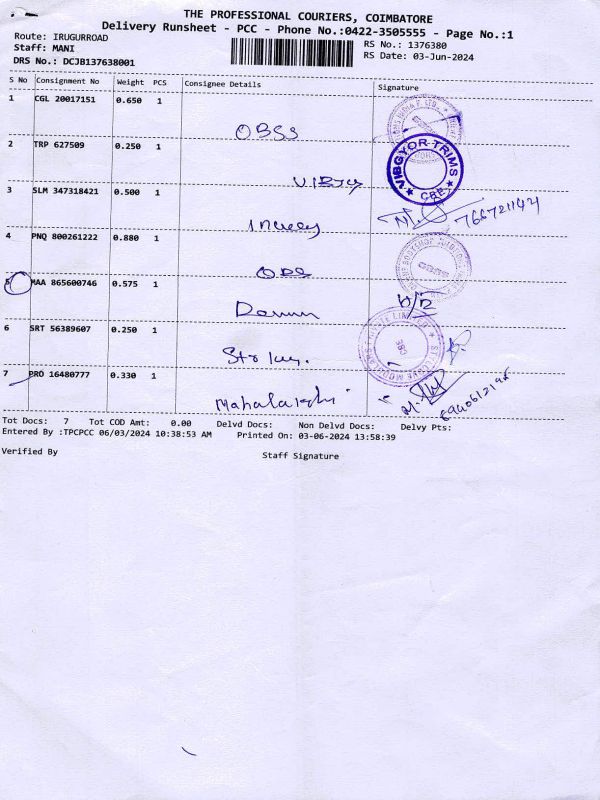 THE PROFESSIONAL COURIERS, COIMBATORE
Delivery Runsheet - PCC - Phone No.:0422-3505555 - Page No.:1
Route: IRUGURROAD
RS No.: 1376380
Staff: MANI
RS Date: 03-Jun-2024
DRS No.: DCJB137638001
S No Consignment No Weight PCS Consignee Details Signature
1 CGL 20017151 0.650 1
OBSS
2 TRP 627509 0.250 1
VIBGYOR TRIMS
CBE
3 SLM 347318421 0.500 1
7667211421
4 PNQ 800261222 0.880 1
5 MAA 865600746 0.575 1
6 SRT 56389607 0.250 1
CBE
7 PRO 16480777 0.330 1
Mahalakshmi
Tot Docs: 7 Tot COD Amt: 0.00 Delvd Docs: Non Delvd Docs: Delvy Pts:
Entered By :TPCPCC 06/03/2024 10:38:53 AM Printed On: 03-06-2024 13:58:39
Verified By
Staff Signature